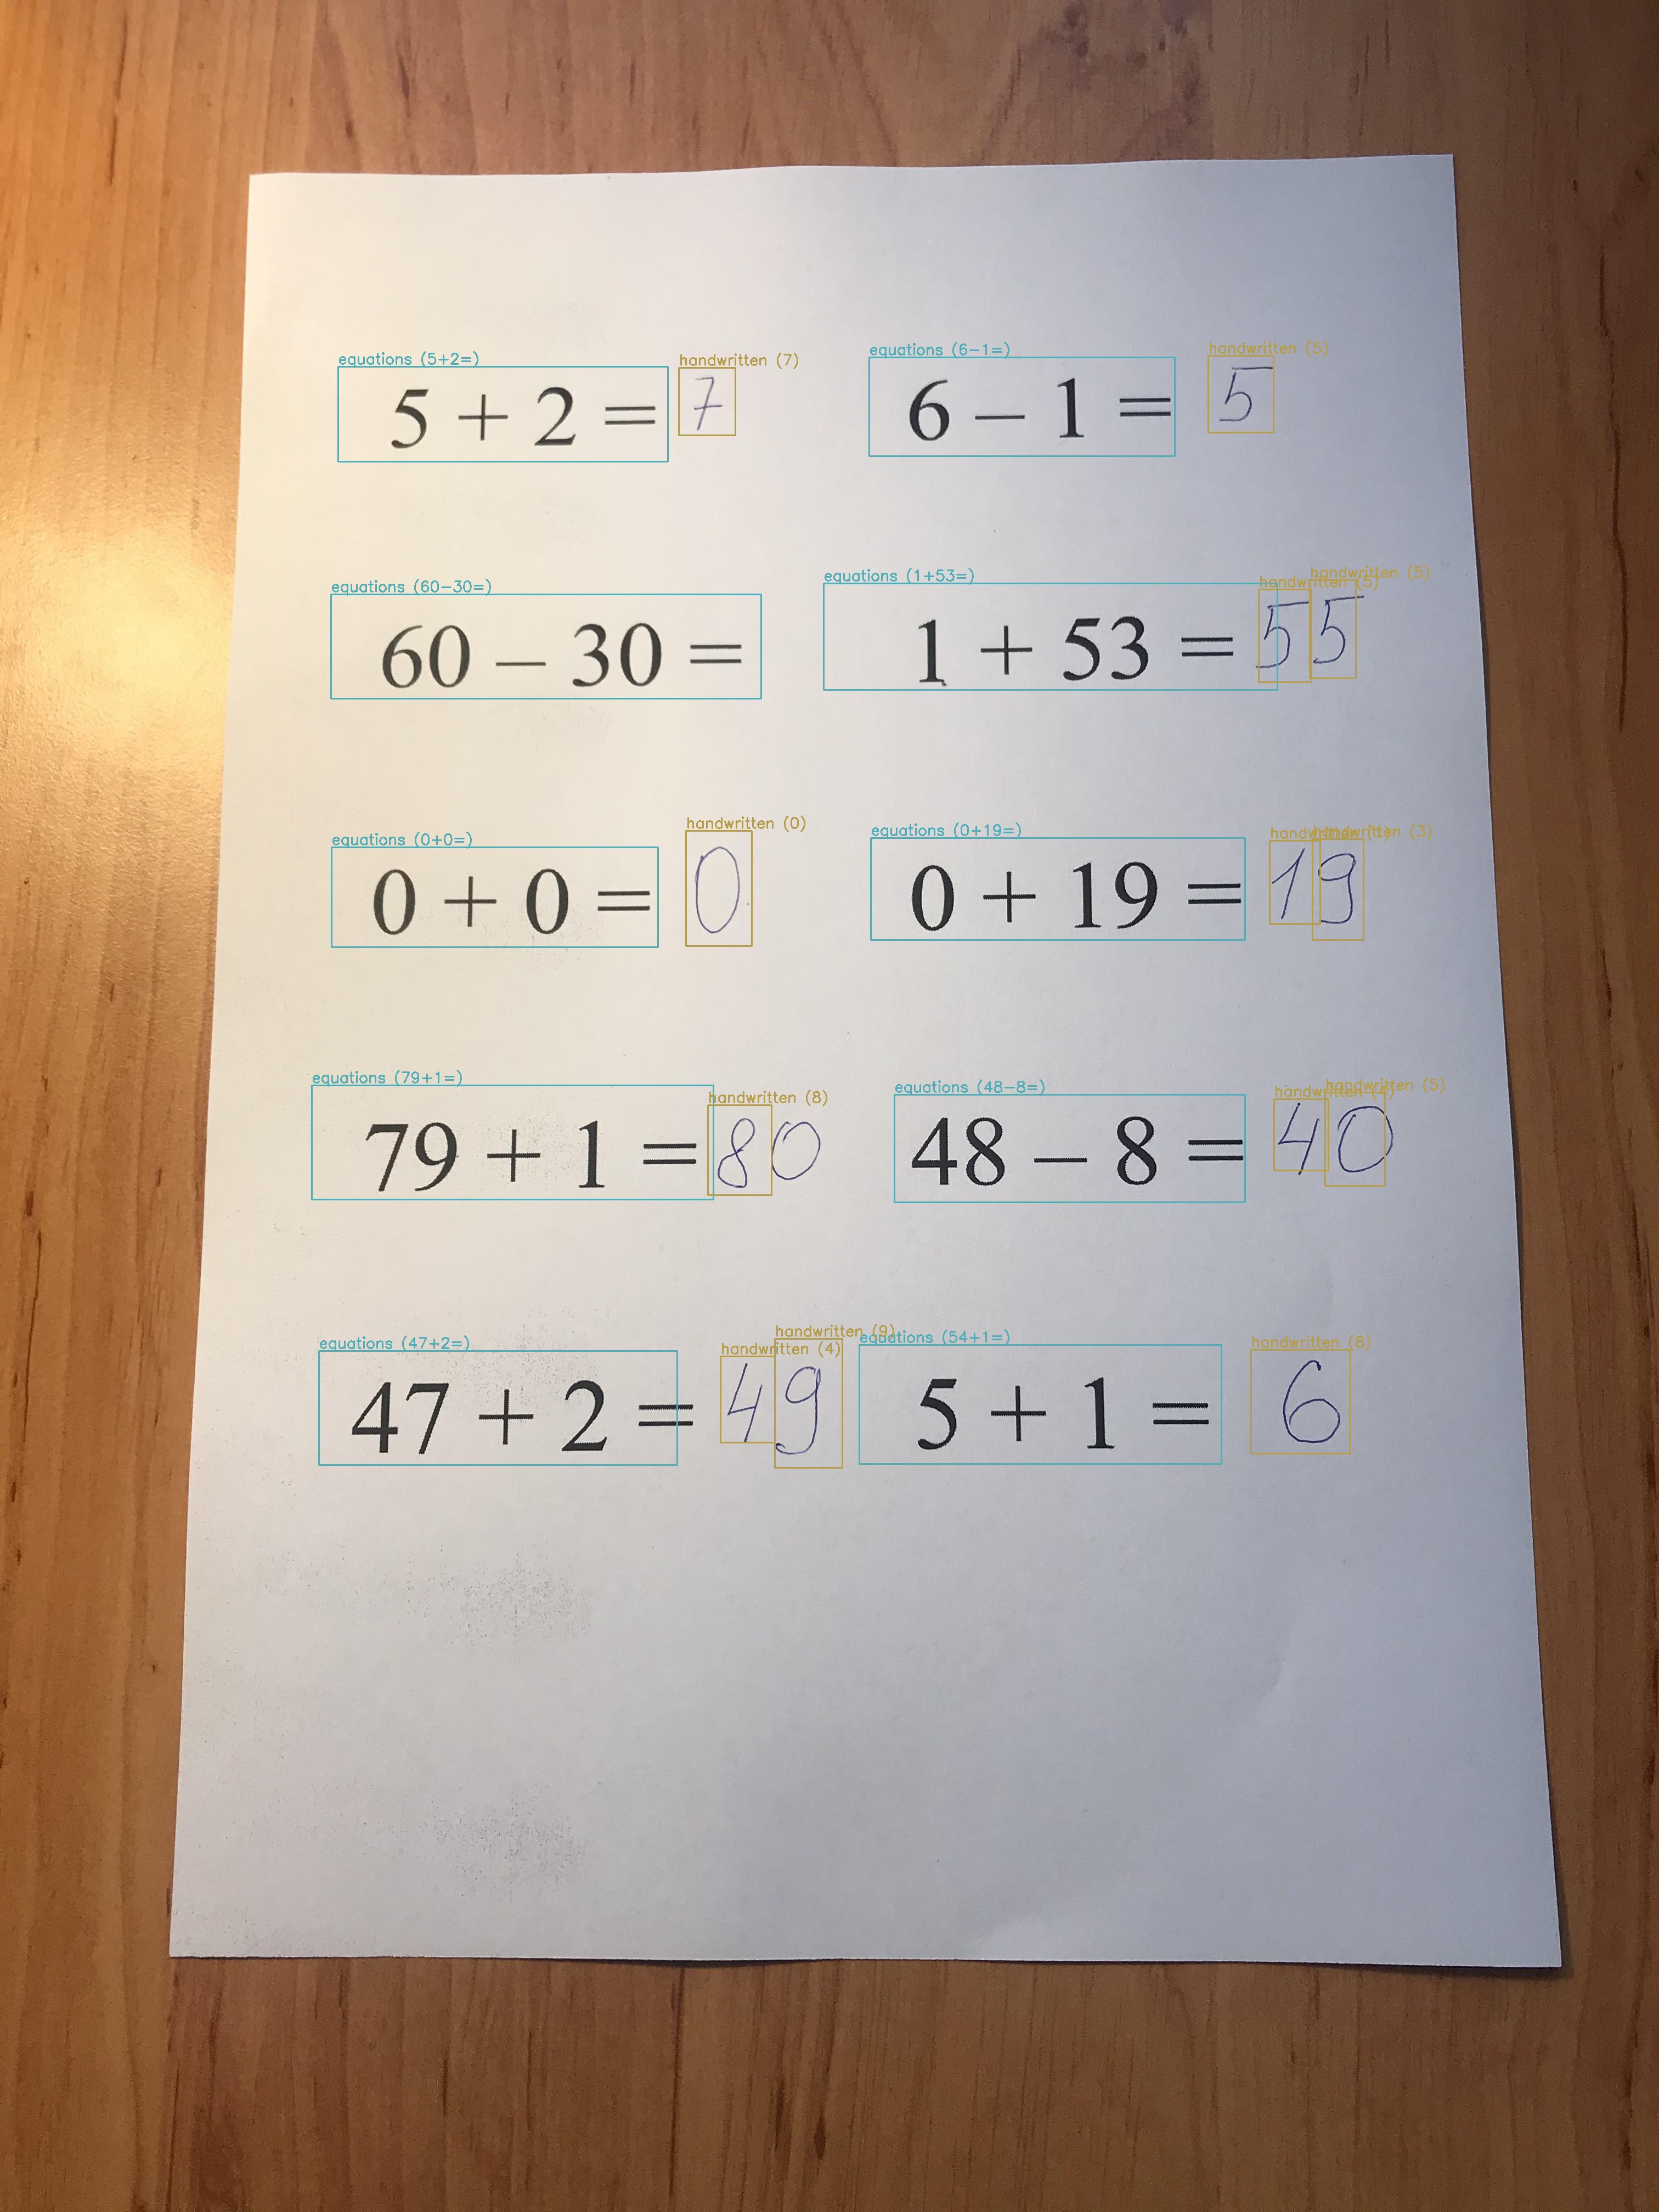 equations (5+2=) handwritten (7) equations (6-1=) handwritten (5)
5 + 2 = 7 6 – 1 = 5
equations (60-30=) equations (1+53=) handwritten (5) handwritten (5)
60 – 30 = 1 + 53 = 55
equations (0+0=) handwritten (0) equations (0+19=) handwritten (3)
0 + 0 = 0 0 + 19 = 19
equations (79+1=) handwritten (8) equations (48-8=) handwritten (4) handwritten (5)
79 + 1 = 80 48 – 8 = 40
equations (47+2=) handwritten (4) handwritten (9) equations (54+1=) handwritten (8)
47 + 2 = 49 5 + 1 = 6